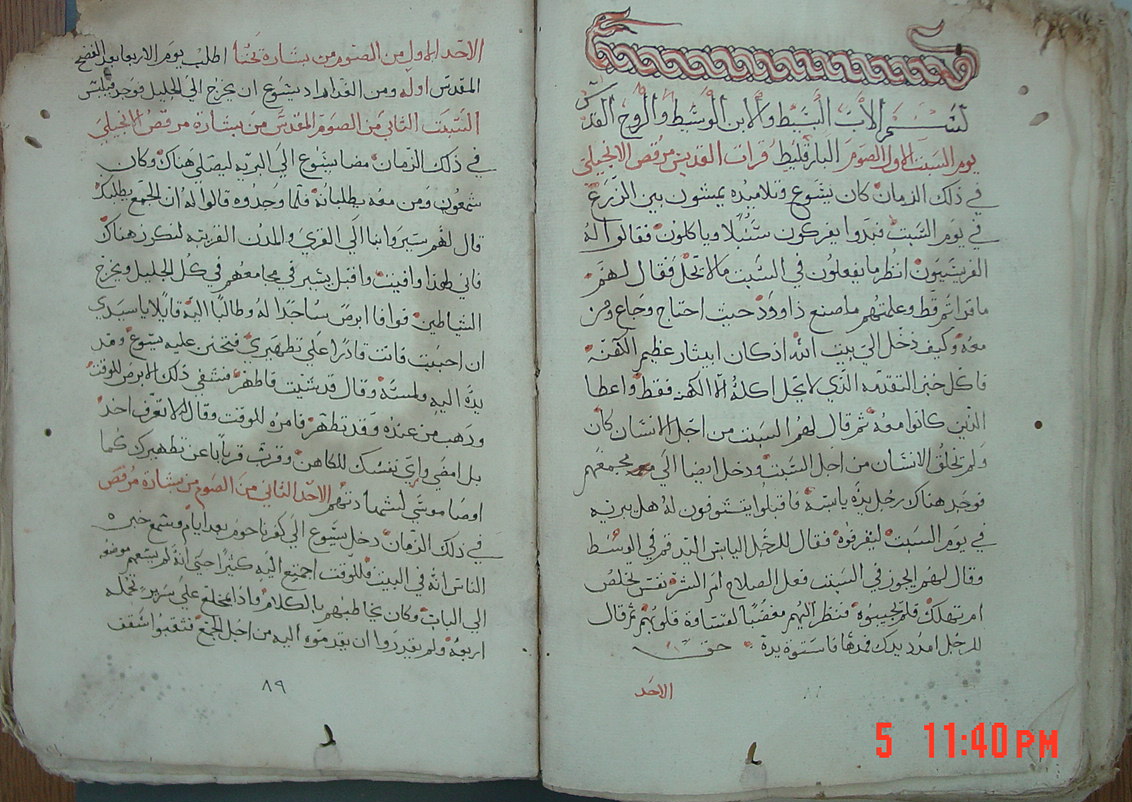 بسم الاب البسيط والابن الوسيط والروح القدس
يوم السبت الاول الصوم البارقليط قرات القديس مرقص الانجيلي
في ذلك الزمان كان يشوع وتلاميذه يمشون بين الزرع
في يوم السبت فبدوا يفركون سنبلا وياكلون فقالوا له
الفريسيون انظر ما يفعلون في السبت ما لا تحل فقال لهم
ما قراتم قط وعلمتهم ما صنع داوود حيث احتاج وجاع ومن
معه وكيف دخل الي بيت الله اذ كان ابيثار عظيم الكهنه
فاكل خبز التقدمه الذي لا تحل اكله الا الكهنه فقط واعطا
الذين كانوا معه ثم قال لهم السبت من اجل الانسان كان
ولم تخلق الانسان من اجل السبت ودخل ايضا الي مجمعهم
فوجد هناك رجل يده ياسه فاقبلوا يتشوفون له هل يبريه
في يوم السبت ليقرفوه فقال للرجل الياس اليد قم في الوسط
وقال لهم ايجوز في السبت فعل الصلاح ام الشر نفس تخلص
ام تهلك فلم يجيبوه فنظر اليهم مغضبا لقساوة قلوبهم ثم قال
للرجل امدد يدك فمدها فاستوة يدة
الاحد
الاحد الاول من الصوم من بشارة يحنا اطلب يوم الاربعا بعد الفصح
المقدس اوله ومن الغد اراد يشوع ان يخرج الي الجليل فوجد فيلبس
السبت الثاني من الصوم المقدس من بشارة مرقص الانجيلي
في ذلك الزمان مضا يشوع الي البريه ليصلي هناك وكان
شمعون ومن معه يطلبانه فلما وجدوه قالوا له ان الجمع يطلبك
قال لهم سيروا بنا الي القري والمدن القريبه لنكرز هناك
فاني لهذا وافيت واقبل يبشر في مجامعهم في كل الجليل ويخرج
الشياطين فوافا ابرص ساجدا له وطالبا اليه قايلا يا سيدي
ان احببت فانت قادرا علي تطهيري فتحنن عليه يشوع وقد
يده اليه ولمسه وقال قد شيت فاطهر فشفي ذلك الابرص للوقت
وذهب من عنده وقد تطهر فامره للوقت وقال له لا تعرف احد
بل امضي واري نفسك للكاهن وقرب قربانا عن تطهيرك كما
اوصا موسي لشهادتهم الاحد الثاني من الصوم من بشارة مرقص
في ذلك الزمان دخل يشوع الي كفرناحوم بعد ايام وسمع خبره
الناس انه في البيت فللوقت اجمع اليه كثيرا حتي انه لم يسعهم موضع
الي الباب وكان يخاطبهم بالكلام واذا بمخلع علي سرير تحمله
اربعه ولم يقدروا ان يقدموه اليه من اجل الجمع فنقبوا سقف
٨٩
5 11:40 PM